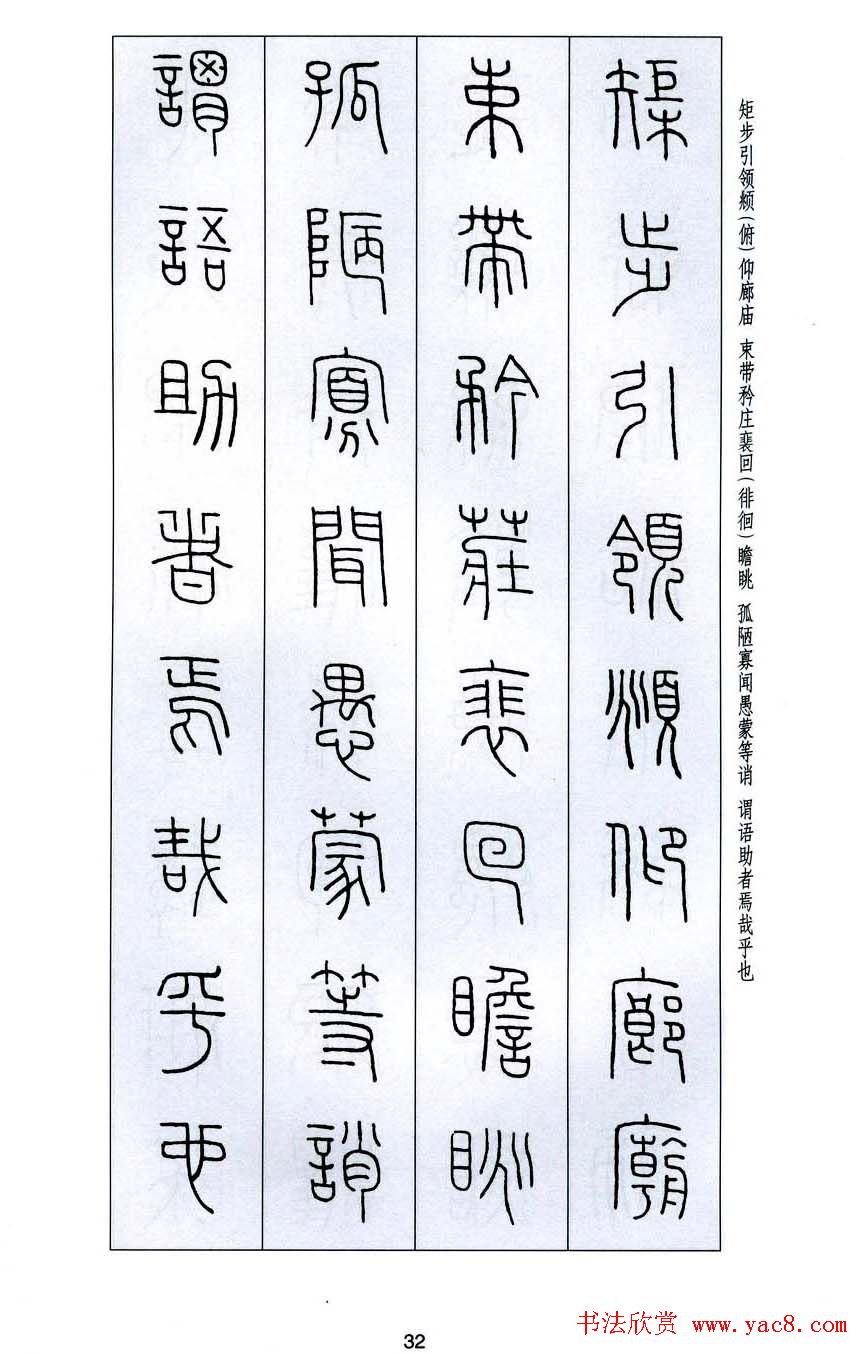 矩步引領頫仰廊廟
束帶矜莊裵回瞻眺
孤陋寡聞愚蒙等誚
謂語助者焉哉乎也
矩步引领頫（俯）仰廊庙 束带矜庄裵回（徘徊）瞻眺 孤陋寡闻愚蒙等诮 谓语助者焉哉乎也
32
书法欣赏 www.yac8.com